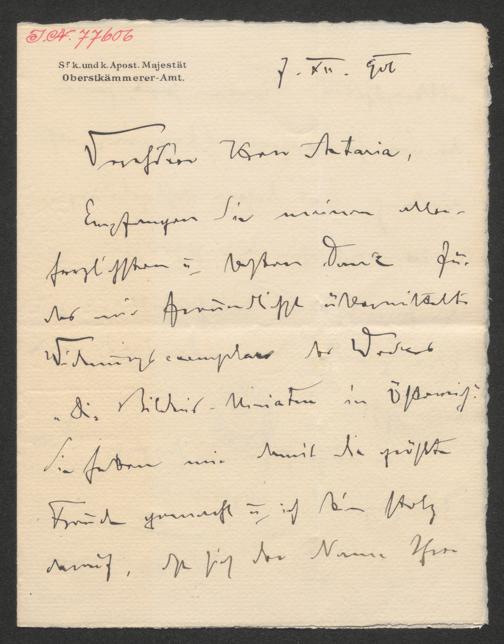 J.N. 77606
Sr k. und k. Apost. Majestät
Oberstkämmerer-Amt.
7. XII. 906
Verehrter Herr Artaria,
Empfangen Sie meinen aller-
herzlichsten u. besten Dank für
das mir freundlichst übermittelte
Widmungsexemplar des Werkes
„Die Bildnis-Miniatur in Österreich".
Sie haben mir damit die größte
Freude gemacht u. ich bin stolz
darauf, daß sich der Name Ihres